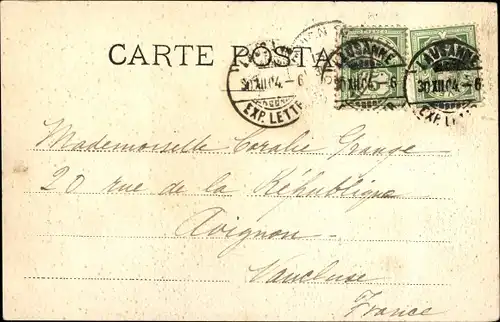 CARTE POSTA
LAUSANNE
30 XII 04 - 6
EXP. LETT
LAUSANNE
30 XII 04 - 6
EXP. LETT
Mademoiselle Coralie Grange
20 rue de la République
Avignon
Vaucluse
France